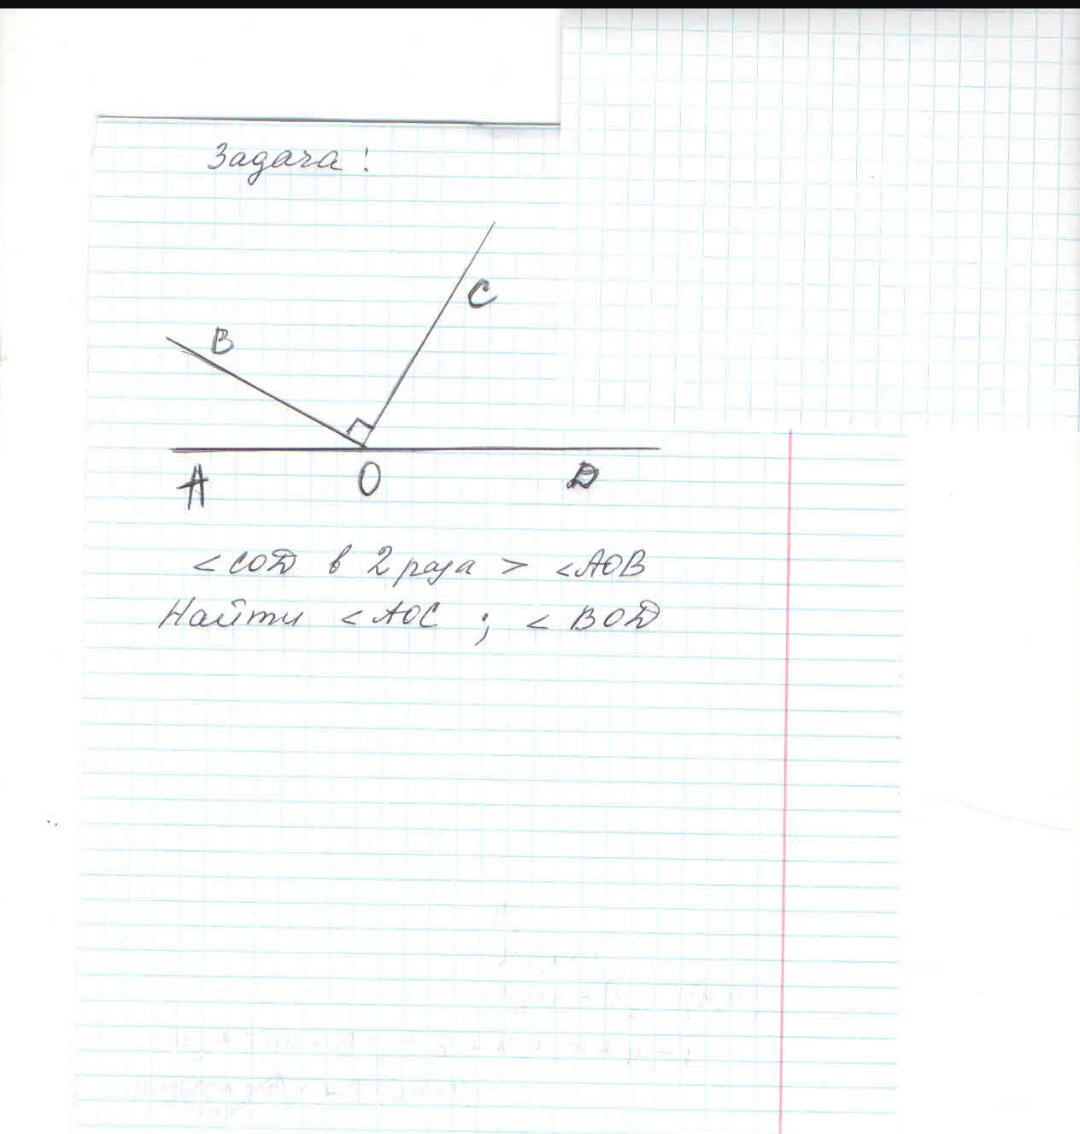 Задача!
C
B
A O D
<COD в 2 раза > <AOB
Найти <AOC ; < BOD